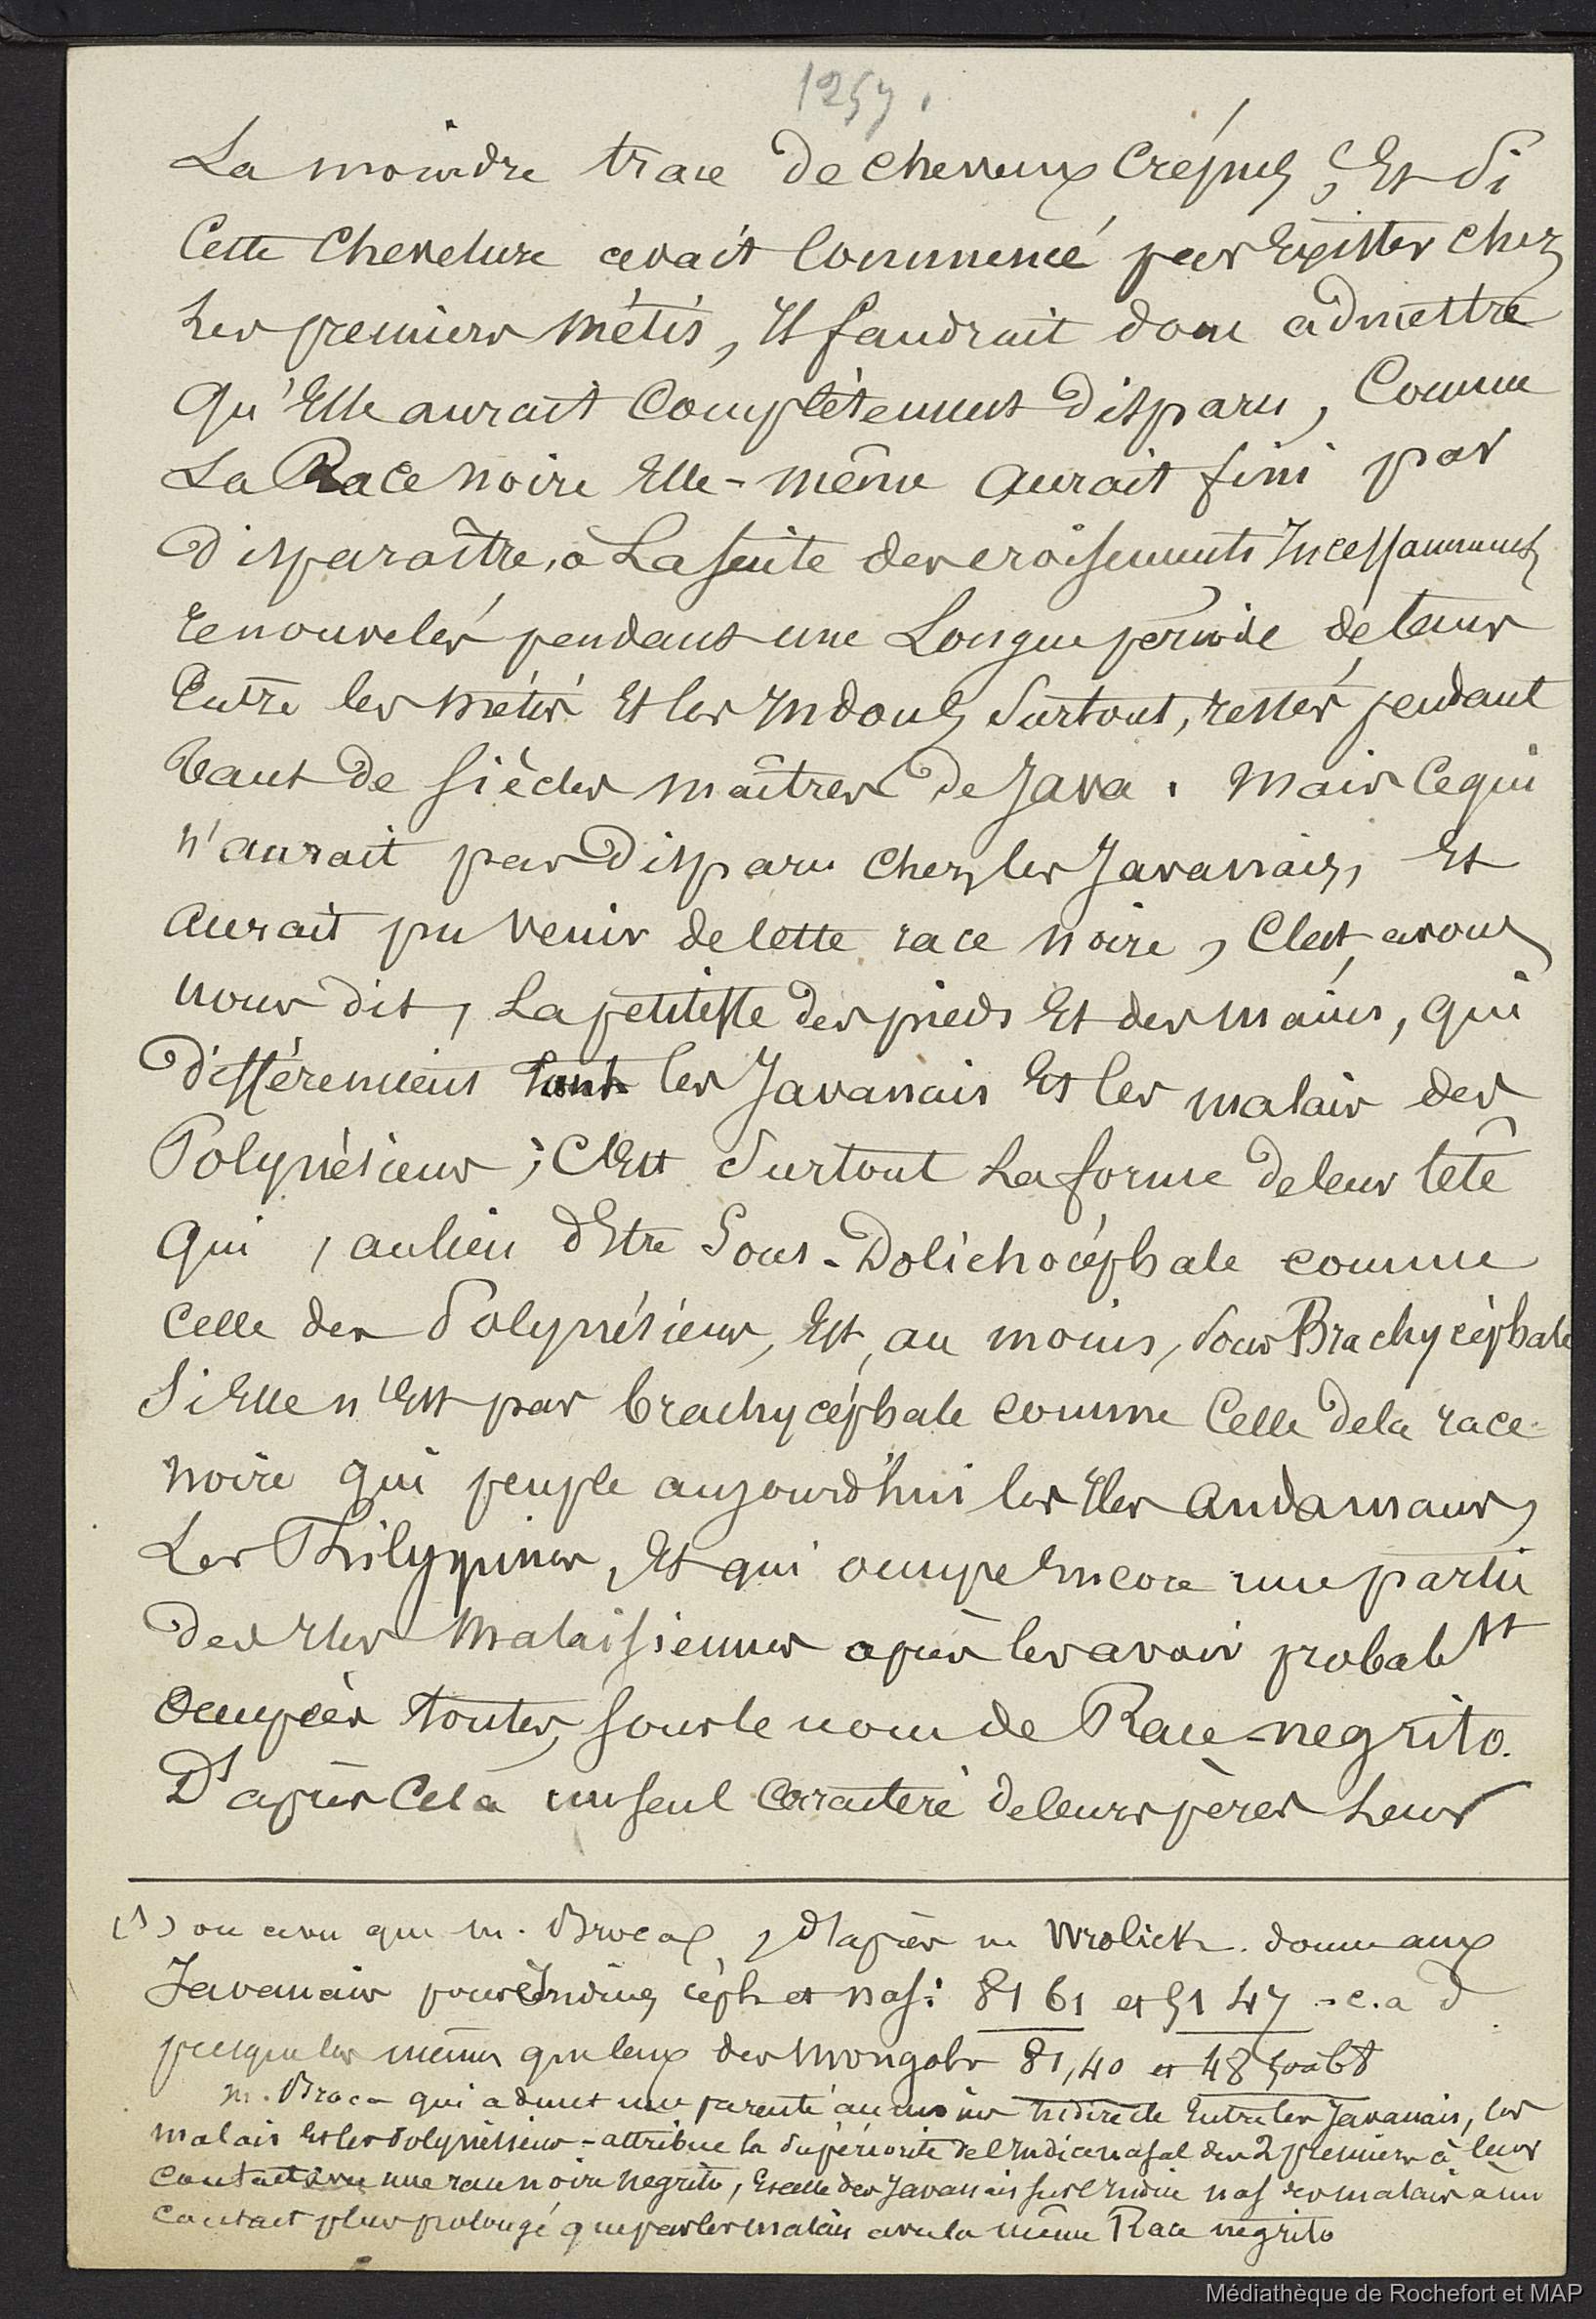 1257.
La moindre trace de cheveux crépus ; Et si
Cette Chevelure avait Commencé par Exister chez
Les premiers Métis, Il faudrait donc admettre
Qu'Elle aurait Complètement Disparu, Comme
La Race noire Elle-même aurait fini par
Disparaître, à La suite des croisements Incessamment
renouvelés pendant une Longue période de temps
Entre les métis Et les Indous, Surtout, restés pendant
tant de siècles maîtres de Java. Mais Ce qui
n'aurait pas Disparu chez les Javanais, Et
aurait pu venir de Cette race noire, C'est, avons
nous dit, La petitesse des pieds Et des mains, qui
différencient tant les Javanais Et les malais des
Polynésiens ; C'Est Surtout La forme de leur tête
qui, au lieu d'Etre Sous-Dolichocéphale comme
celle des Polynésiens, Est, au moins, Sous Brachycéphale
Si Elle n'Est pas brachycéphale comme Celle de la race
noire qui peuple aujourd'hui les Iles andamans,
Les Philyppines, Et qui occupe Encore une partie
des Iles Malaisiennes après les avoir probablt
Occupées toutes, sous le nom de Race-negrito.
D'après Celà un seul Caractère de leurs pères Leur
(1) on a vu que m. Broca, d'après m Wrolick. donne aux
Javanais pour Indices céph et nas: 81 61 et 51 47 - c. a d
presque les mêmes que ceux des Mongols 81,40 et 48 68
M. Broca qui admet une parenté au moins Indirecte Entre les Javanais, les
malais Et les Polynésiens - attribue la Supériorité de l'Indice nasal des 2 premiers à leur
contact avec une race noire negrito, Et celle des Javanais sur l'Indice nas des malais à un
Contact plus prolongé que par les malais avec la même Race negrito
Médiathèque de Rochefort et MAP